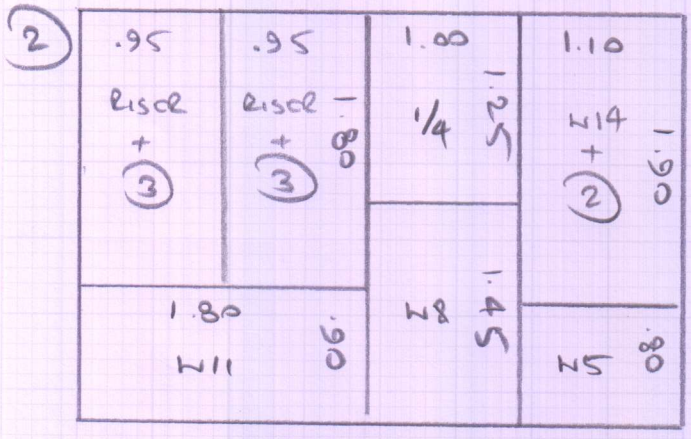 2
.95
RISER
+
3
.95
RISER
+
3
1.80
1.00
1/4
1.25
1.10
N14
+
2
1.90
1.80
N11
.90
N8
1.45
N5
.80